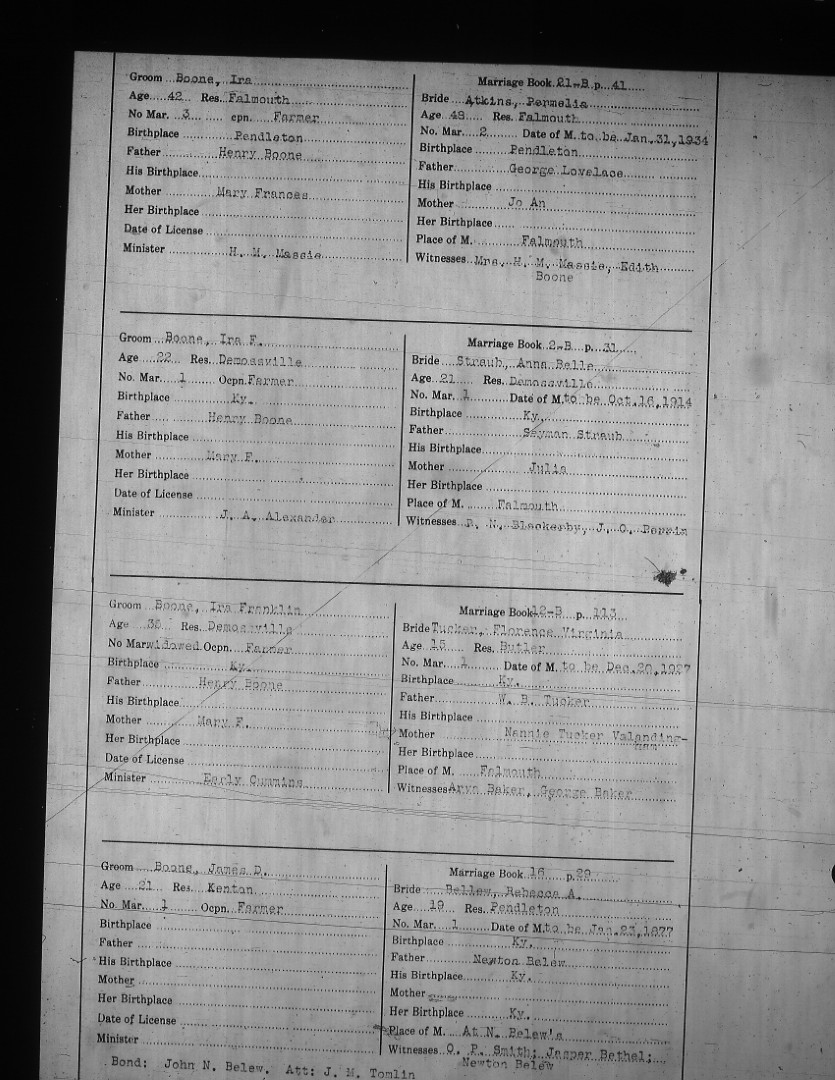 Groom Boone, Ira
Age 42 Res. Falmouth
No Mar. 3 cpn. Farmer
Birthplace Pendleton
Father Henry Boone
His Birthplace
Mother Mary Frances
Her Birthplace
Date of License
Minister H. M. Massie
Marriage Book 21-B p. 41
Bride Atkins, Permelia
Age 48 Res. Falmouth
No. Mar. 2 Date of M. to be Jan. 31, 1934
Birthplace Pendleton
Father George Lovelace
His Birthplace
Mother Jo An
Her Birthplace
Place of M. Falmouth
Witnesses Mrs. H. M. Massie, Edith
Boone
Groom Boone, Ira F.
Age 22 Res. Demossville
No. Mar. 1 Ocpn. Farmer
Birthplace Ky.
Father Henry Boone
His Birthplace
Mother Mary F.
Her Birthplace
Date of License
Minister J. A. Alexander
Marriage Book 2-B p. 31
Bride Straub, Anna Belle
Age 21 Res. Demossville
No. Mar. 1 Date of M. to be Oct. 16, 1914
Birthplace Ky.
Father Seyman Straub
His Birthplace
Mother Julia
Her Birthplace
Place of M. Falmouth
Witnesses R. N. Blackerby, J. O. Perrin
Groom Boone, Ira Franklin
Age Res. Demossville
No Mar widowed Ocpn. Farmer
Birthplace Ky.
Father Henry Boone
His Birthplace
Mother Mary F.
Her Birthplace
Date of License
Minister Early Cummins
Marriage Book 12-B p. 113
Bride Tucker, Florence Virginia
Age 15 Res. Butler
No. Mar. 1 Date of M. to be Dec. 20, 1927
Birthplace Ky.
Father W. B. Tucker
His Birthplace
Mother Nannie Tucker Valanding-
ham
Her Birthplace
Place of M. Falmouth
Witnesses Arvn Baker, George Baker
Groom Boone, James D.
Age 21 Res. Kenton
No. Mar. 1 Ocpn. Farmer
Birthplace
Father
His Birthplace
Mother
Her Birthplace
Date of License
Minister
Bond: John N. Belew. Att: J. M. Tomlin
Marriage Book 16 p. 29
Bride Bellew, Rebecca A.
Age 19 Res. Pendleton
No. Mar. 1 Date of M. to be Jan. 23, 1877
Birthplace Ky.
Father Newton Belew
His Birthplace Ky.
Mother
Her Birthplace Ky.
Place of M. At N. Belew's
Witnesses O. P. Smith; Jasper Bethel;
Newton Belew